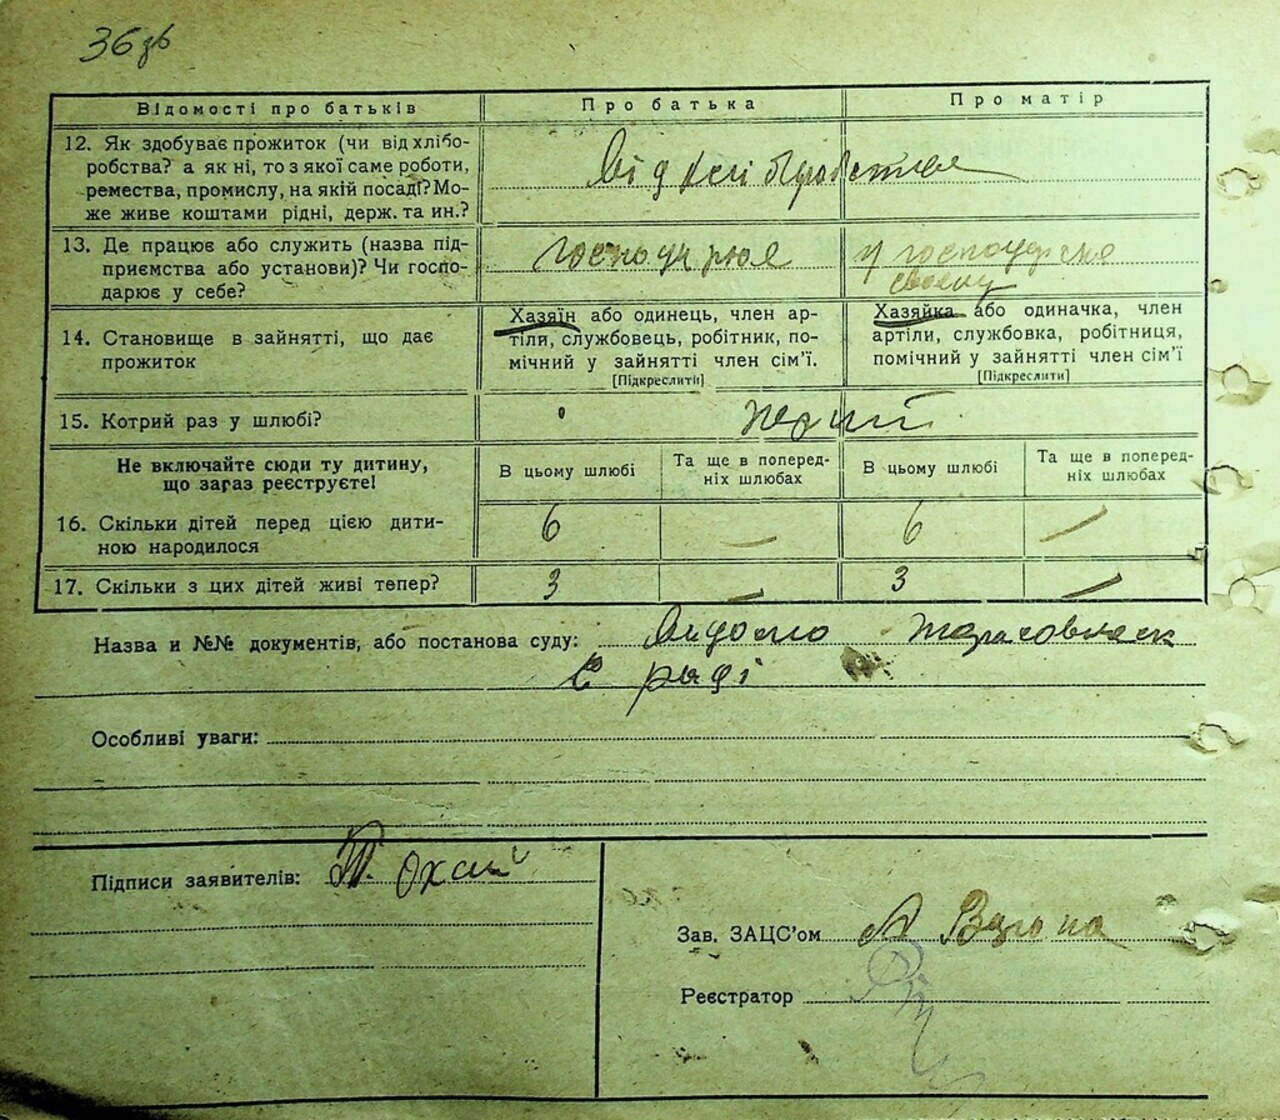 36 зв
Відомості про батьків
Про батька
Про матір
12. Як здобуває прожиток (чи від хлібо-
робства? а як ні, то з якої саме роботи,
ремества, промислу, на якій посаді? Мо-
же живе коштами рідні, держ. та ин.?
Від хліборобства
13. Де працює або служить (назва під-
приємства або установи)? Чи госпо-
дарює у себе?
господарює
у господарстві
своему
14. Становище в зайнятті, що дає
прожиток
Хазяїн або одинець, член ар-
тіли, службовець, робітник, по-
мічний у зайнятті член сім'ї.
[Підкреслити]
Хазяйка або одиначка, член
артіли, службовка, робітниця,
помічний у зайнятті член сім'ї
[Підкреслити]
15. Котрий раз у шлюбі?
перший
Не включайте сюди ту дитину,
що зараз реєструєте!
В цьому шлюбі
Та ще в поперед-
ніх шлюбах
В цьому шлюбі
Та ще в поперед-
ніх шлюбах
16. Скільки дітей перед цією дити-
ною народилося
6
—
6
—
17. Скільки з цих дітей живі тепер?
3
—
3
—
Назва и №№ документів, або постанова суду: Видомо
С раді
Особливі уваги:
Підписи заявителів:
Зав. ЗАЦС'ом
Реєстратор